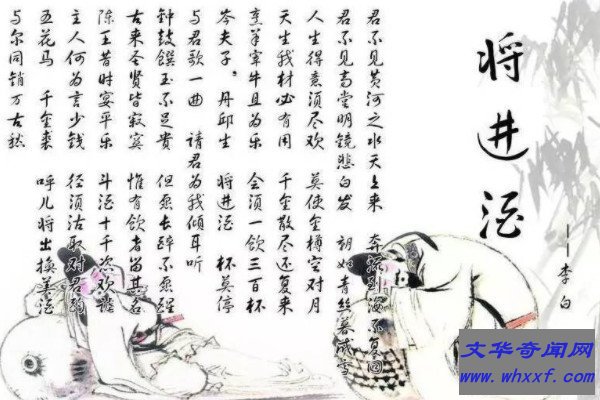 将进酒
——李白
君不见黄河之水天上来 奔流到海不复回
君不见高堂明镜悲白发 朝如青丝暮成雪
人生得意须尽欢 莫使金樽空对月
天生我材必有用 千金散尽还复来
烹羊宰牛且为乐 会须一饮三百杯
岑夫子，丹邱生 将进酒 杯莫停
与君歌一曲 请君为我倾耳听
钟鼓馔玉不足贵 但愿长醉不愿醒
古来圣贤皆寂寞 惟有饮者留其名
陈王昔时宴平乐 斗酒十千恣欢谑
主人何为言少钱 径须沽取对君酌
五花马 千金裘 呼儿将出换美酒
与尔同销万古愁
文华奇闻网
www.whxxf.com